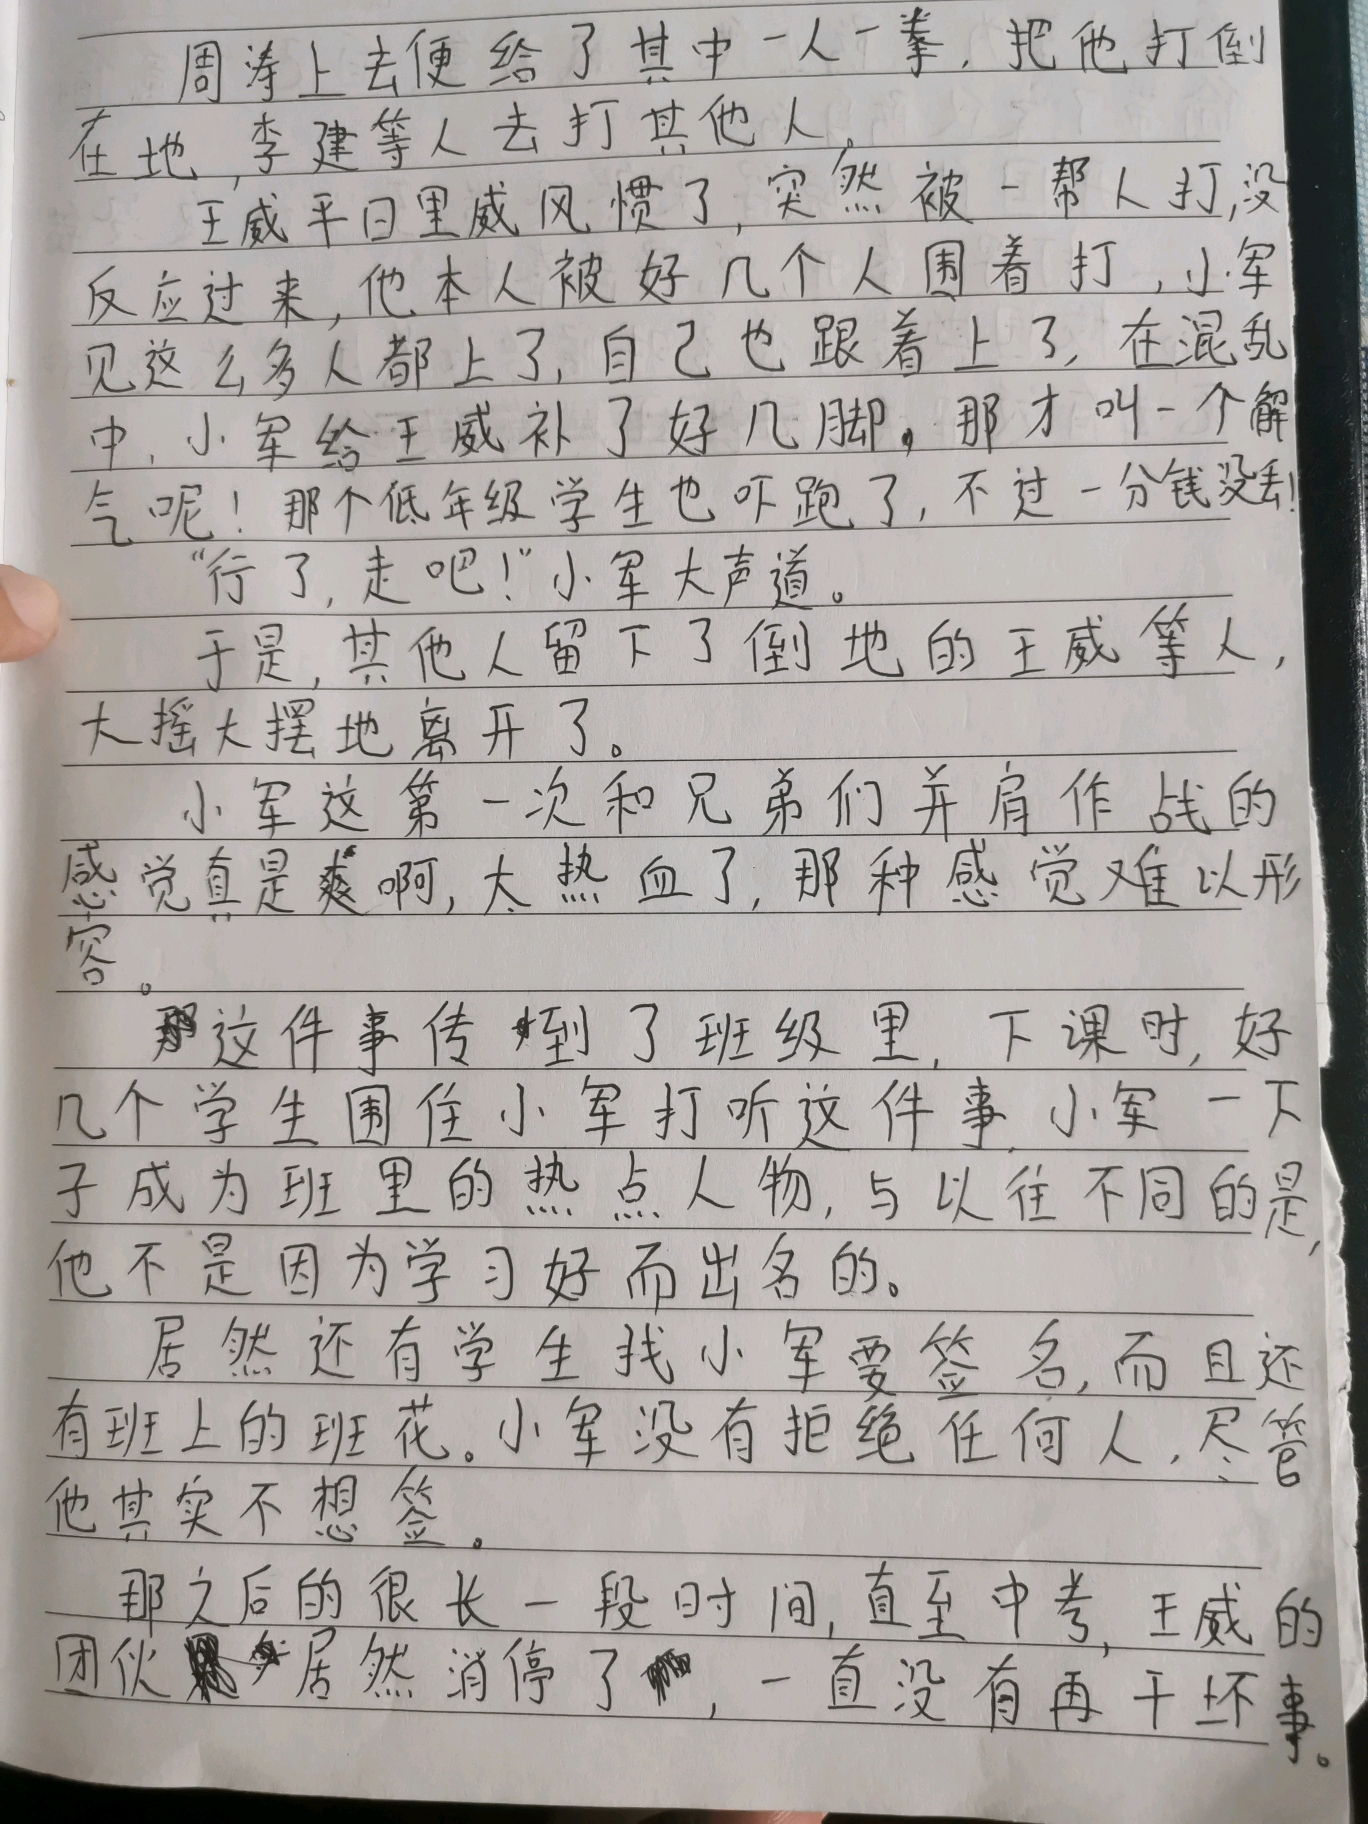 周涛上去便给了其中一人一拳，把他打倒
在地，李建等人去打其他人。
王威平日里威风惯了，突然被一帮人打，没
反应过来，他本人被好几个人围着打，小军
见这么多人都上了，自己也跟着上了，在混乱
中，小军给王威补了好几脚，那才叫一个解
气呢！那个低年级学生也吓跑了，不过一分钱没丢！
“行了，走吧！”小军大声道。
于是，其他人留下了倒地的王威等人，
大摇大摆地离开了。
小军这第一次和兄弟们并肩作战的
感觉真是爽啊，太热血了，那种感觉难以形
容。
这件事传到了班级里，下课时，好
几个学生围住小军打听这件事，小军一下
子成为班里的热点人物，与以往不同的是，
他不是因为学习好而出名的。
居然还有学生找小军要签名，而且还
有班上的班花。小军没有拒绝任何人，尽管
他其实不想签。
那之后的很长一段时间，直至中考，王威的
团伙居然消停了，一直没有再干坏事。